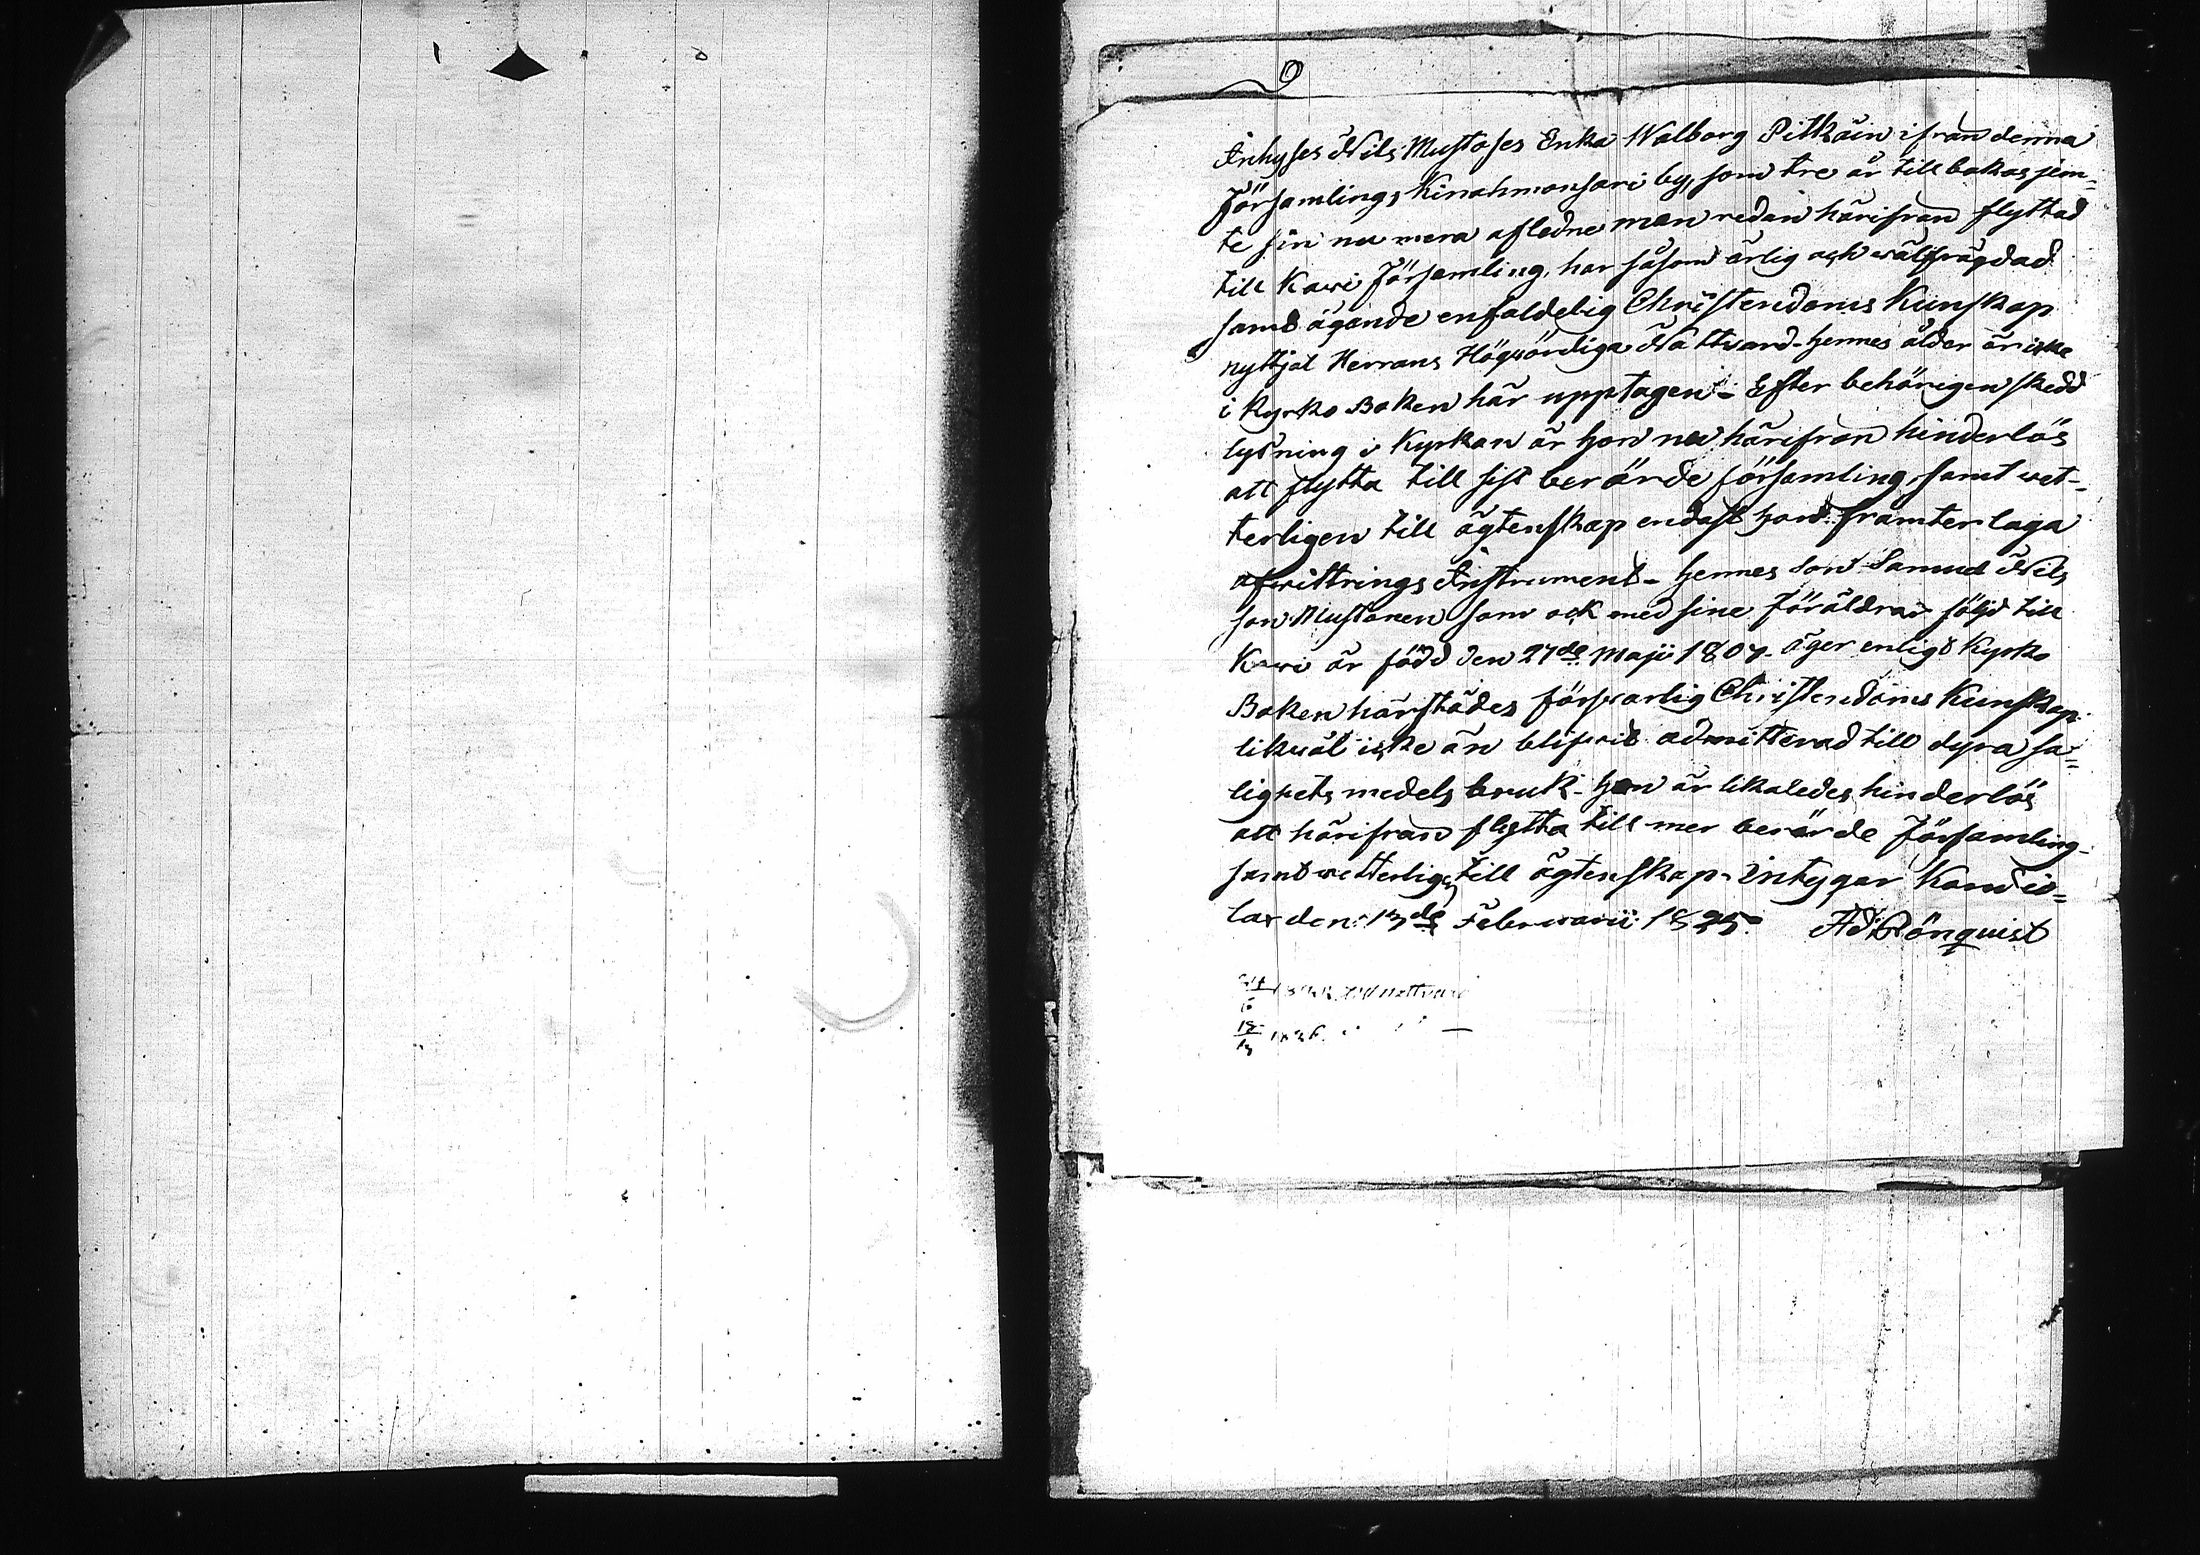 Inhyses Nils Mustoses Enka Walborg Pitkäin ifrån denna
Församlings Kinahmonsari by, som tre år tillbakas jem=
te sin nu mera afledne man redan härifrån flyttad
till Kavi Församling, har såsom ärlig och wälfrägdad
samt ägande enfaldelig Christendoms Kunskap
nyttjat Herrans Högvördiga Nattvard - hennes ålder är icke
i Kyrko Boken här upptagen - Efter behörigen skedd
lysning i Kyrkan är hon nu härifrån hinderlös
att flytta till sist berörde församling, samt wet-
terligen till ägtenskap endast hon framter laga
afwittrings Instrument - hennes son Samuel Nils
son Mustonen som ock med sine Föräldrar följd till
Kavi är född den 27de Maji 1807 - äger enligt Kyrko
Boken härstädes försvarlig Christendoms Kunskap
likwäl icke än blifvit admitterad till dyra sa=
lighets medels bruk - han är likaledes hinderlös
att härifrån flytta till mer berörde Församling -
samt wetterligen till ägtenskap - Intygar Kandis=
lax den 13de Februarii 1825. Ad: Rönquist
nattvard
18/3 1826.